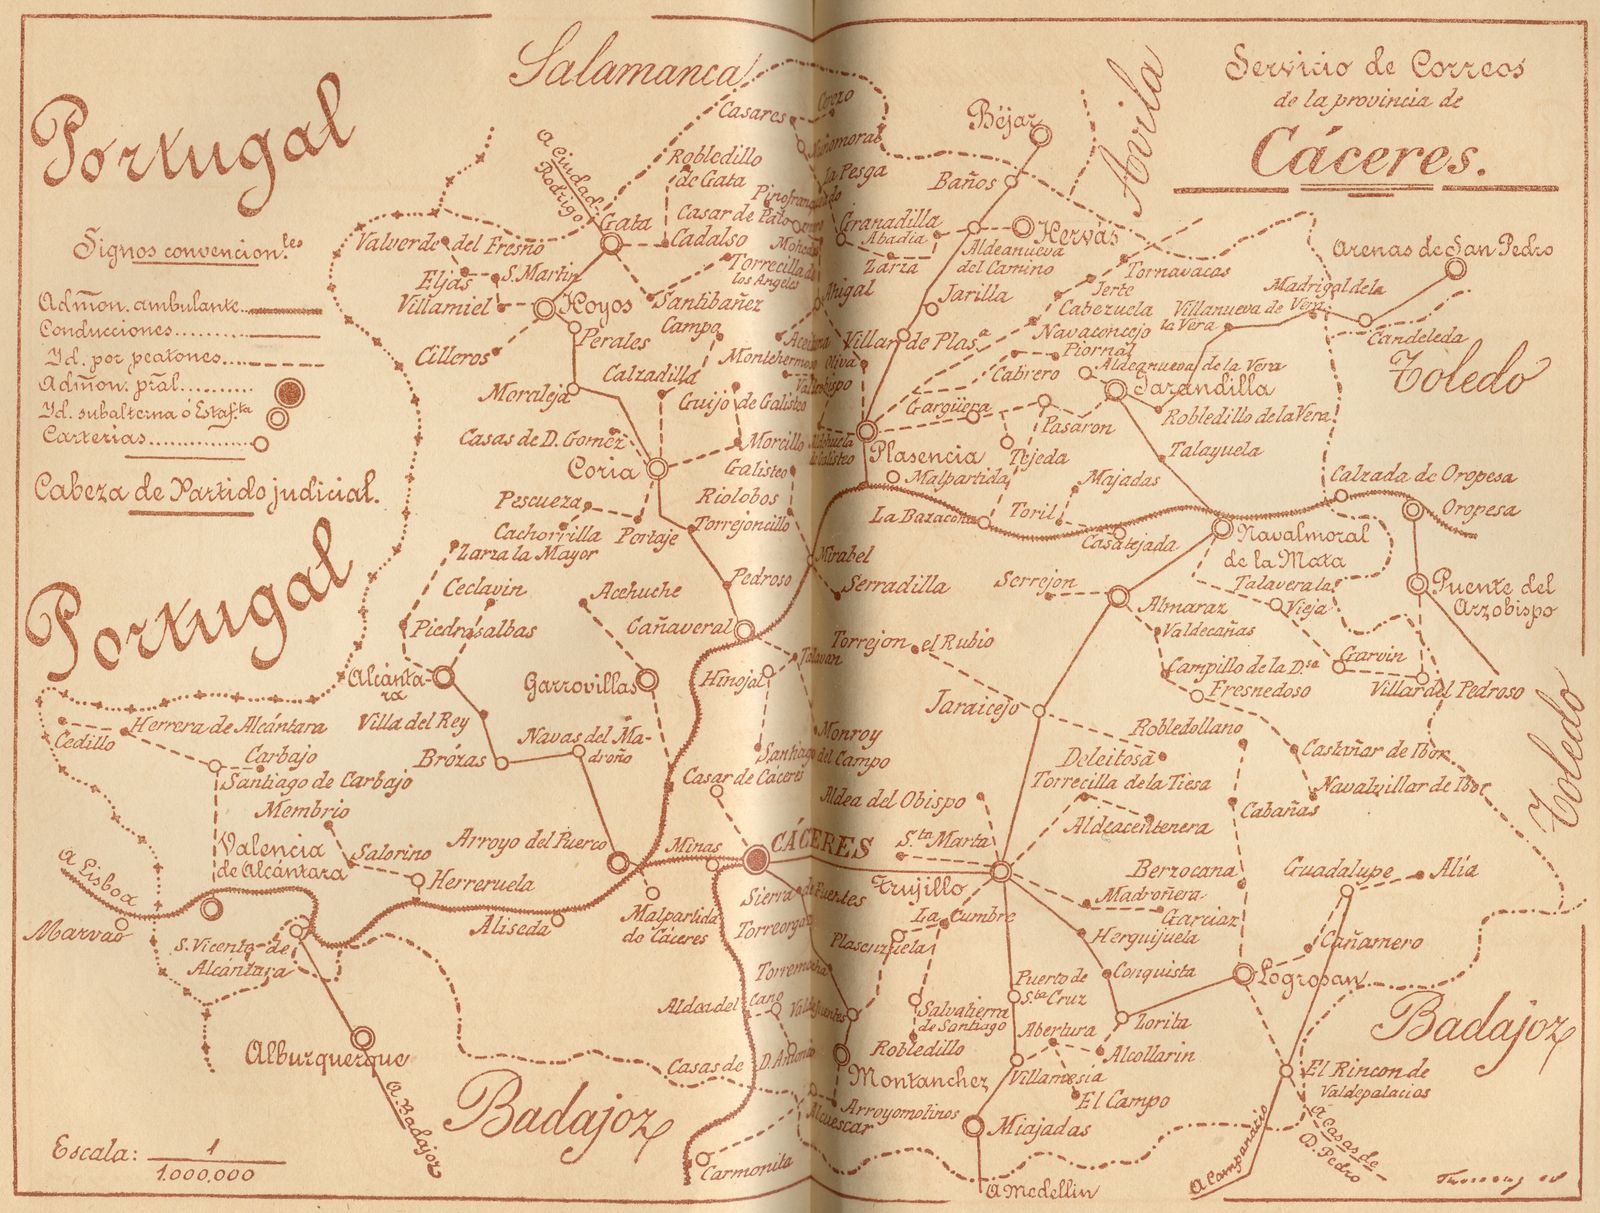 Servicio de Correos
de la provincia de
Cáceres.
Salamanca
Portugal
Avila
Signos convencion.les
Admon. ambulante
Conducciones
Yd. por peatones
Admon. pral.
Yd. subalterna ó Estaf.ta
Carterias
Cabeza de Partido judicial.
Portugal
Toledo
Toledo
Badajoz
Badajoz
Escala: 1
1.000,000
A Ciudad-
Rodrigo
Casares
Cerezo
Robledillo
de Gata
La Pesga
Bejar
Baños
Gata
Casar de Palo
Cadalso
Granadilla
Abadia
Zarza
Hervás
Aldeanueva
del Camino
Arenas de San Pedro
Valverde del Fresno
Eljas
S. Martin
Villamiel
Hoyos
Santibañez
Torrecilla de
los Angeles
Tornavacas
Jerte
Jarilla
Cabezuela
Navaconcejo
Madrigal de la
Vera
Villanueva de
la Vera
Candeleda
Cilleros
Perales
Campo
Villar de Plas.a
Piornal
Cabrero
Aldeanueva de la Vera
Moraleja
Calzadilla
Montehermoso
Oliva
Guijo de Galisteo
Jarandilla
Robledillo de la Vera
Gargüera
Pasaron
Casas de D. Gomez
Morcillo
Coria
Galisteo
Plasencia
Tejeda
Talayuela
Malpartida
Majadas
Toril
Calzada de Oropesa
Oropesa
Pescueza
Riolobos
Cachorrilla
Portaje
Torrejoncillo
Casatejada
Navalmoral
de la Mata
Zarza la Mayor
Mirabel
Serradilla
Serrejon
Ceclavin
Acehuche
Pedroso
Almaraz
Talavera la
Vieja
Puente del
Arzobispo
Piedrasalbas
Cañaveral
Torrejon el Rubio
Valdecañas
Campillo de la D.sa
Garvin
Fresnedoso
Villar del Pedroso
Alcánta-
ra
Garrovillas
Hinojal
Talavan
Jaraicejo
Villa del Rey
Brózas
Navas del Ma-
droño
Monroy
Santiago del Campo
Robledollano
Deleitosa
Castañar de Ibor
Herrera de Alcántara
Cedillo
Carbajo
Santiago de Carbajo
Casar de Cáceres
Torrecilla de la Tiesa
Navalvillar de Ibor
Cabañas
Membrio
Aldea del Obispo
Aldeacentenera
Valencia
de Alcántara
Salorino
Arroyo del Puerco
Minas
CÁCERES
S.ta Marta
Trujillo
Berzocana
Guadalupe
Alía
A Lisboa
Herreruela
Sierra de Fuentes
Madroñera
Garciaz
Marvao
Aliseda
Malpartida
de Cáceres
La Cumbre
Plasenzuela
Herguijuela
Cañamero
S. Vicente de
Alcántara
Conquista
Logrosan
Puerto de
S.ta Cruz
Salvatierra
de Santiago
Zorita
Abertura
Robledillo
Alcollarin
Alburquerque
Casas de
D. Antonio
Montanchez
Villamesia
El Campo
El Rincon de
Valdepalacios
A Badajoz
Alcuescar
Arroyomolinos
Miajadas
Carmonita
A Medellin
A Casas de
D. Pedro